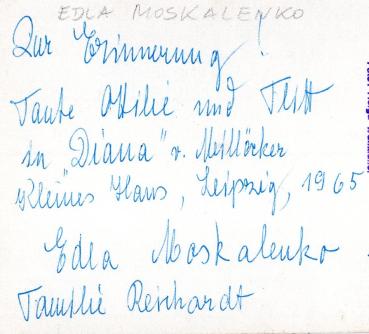 EDLA MOSKALENKO
Zur Erinnerung!
Tante Ottilie und Flitt
in „Diana" v. Millöcker
Kleines Haus, Leipzig, 1965
Edla Moskalenko
Familie Reinhardt